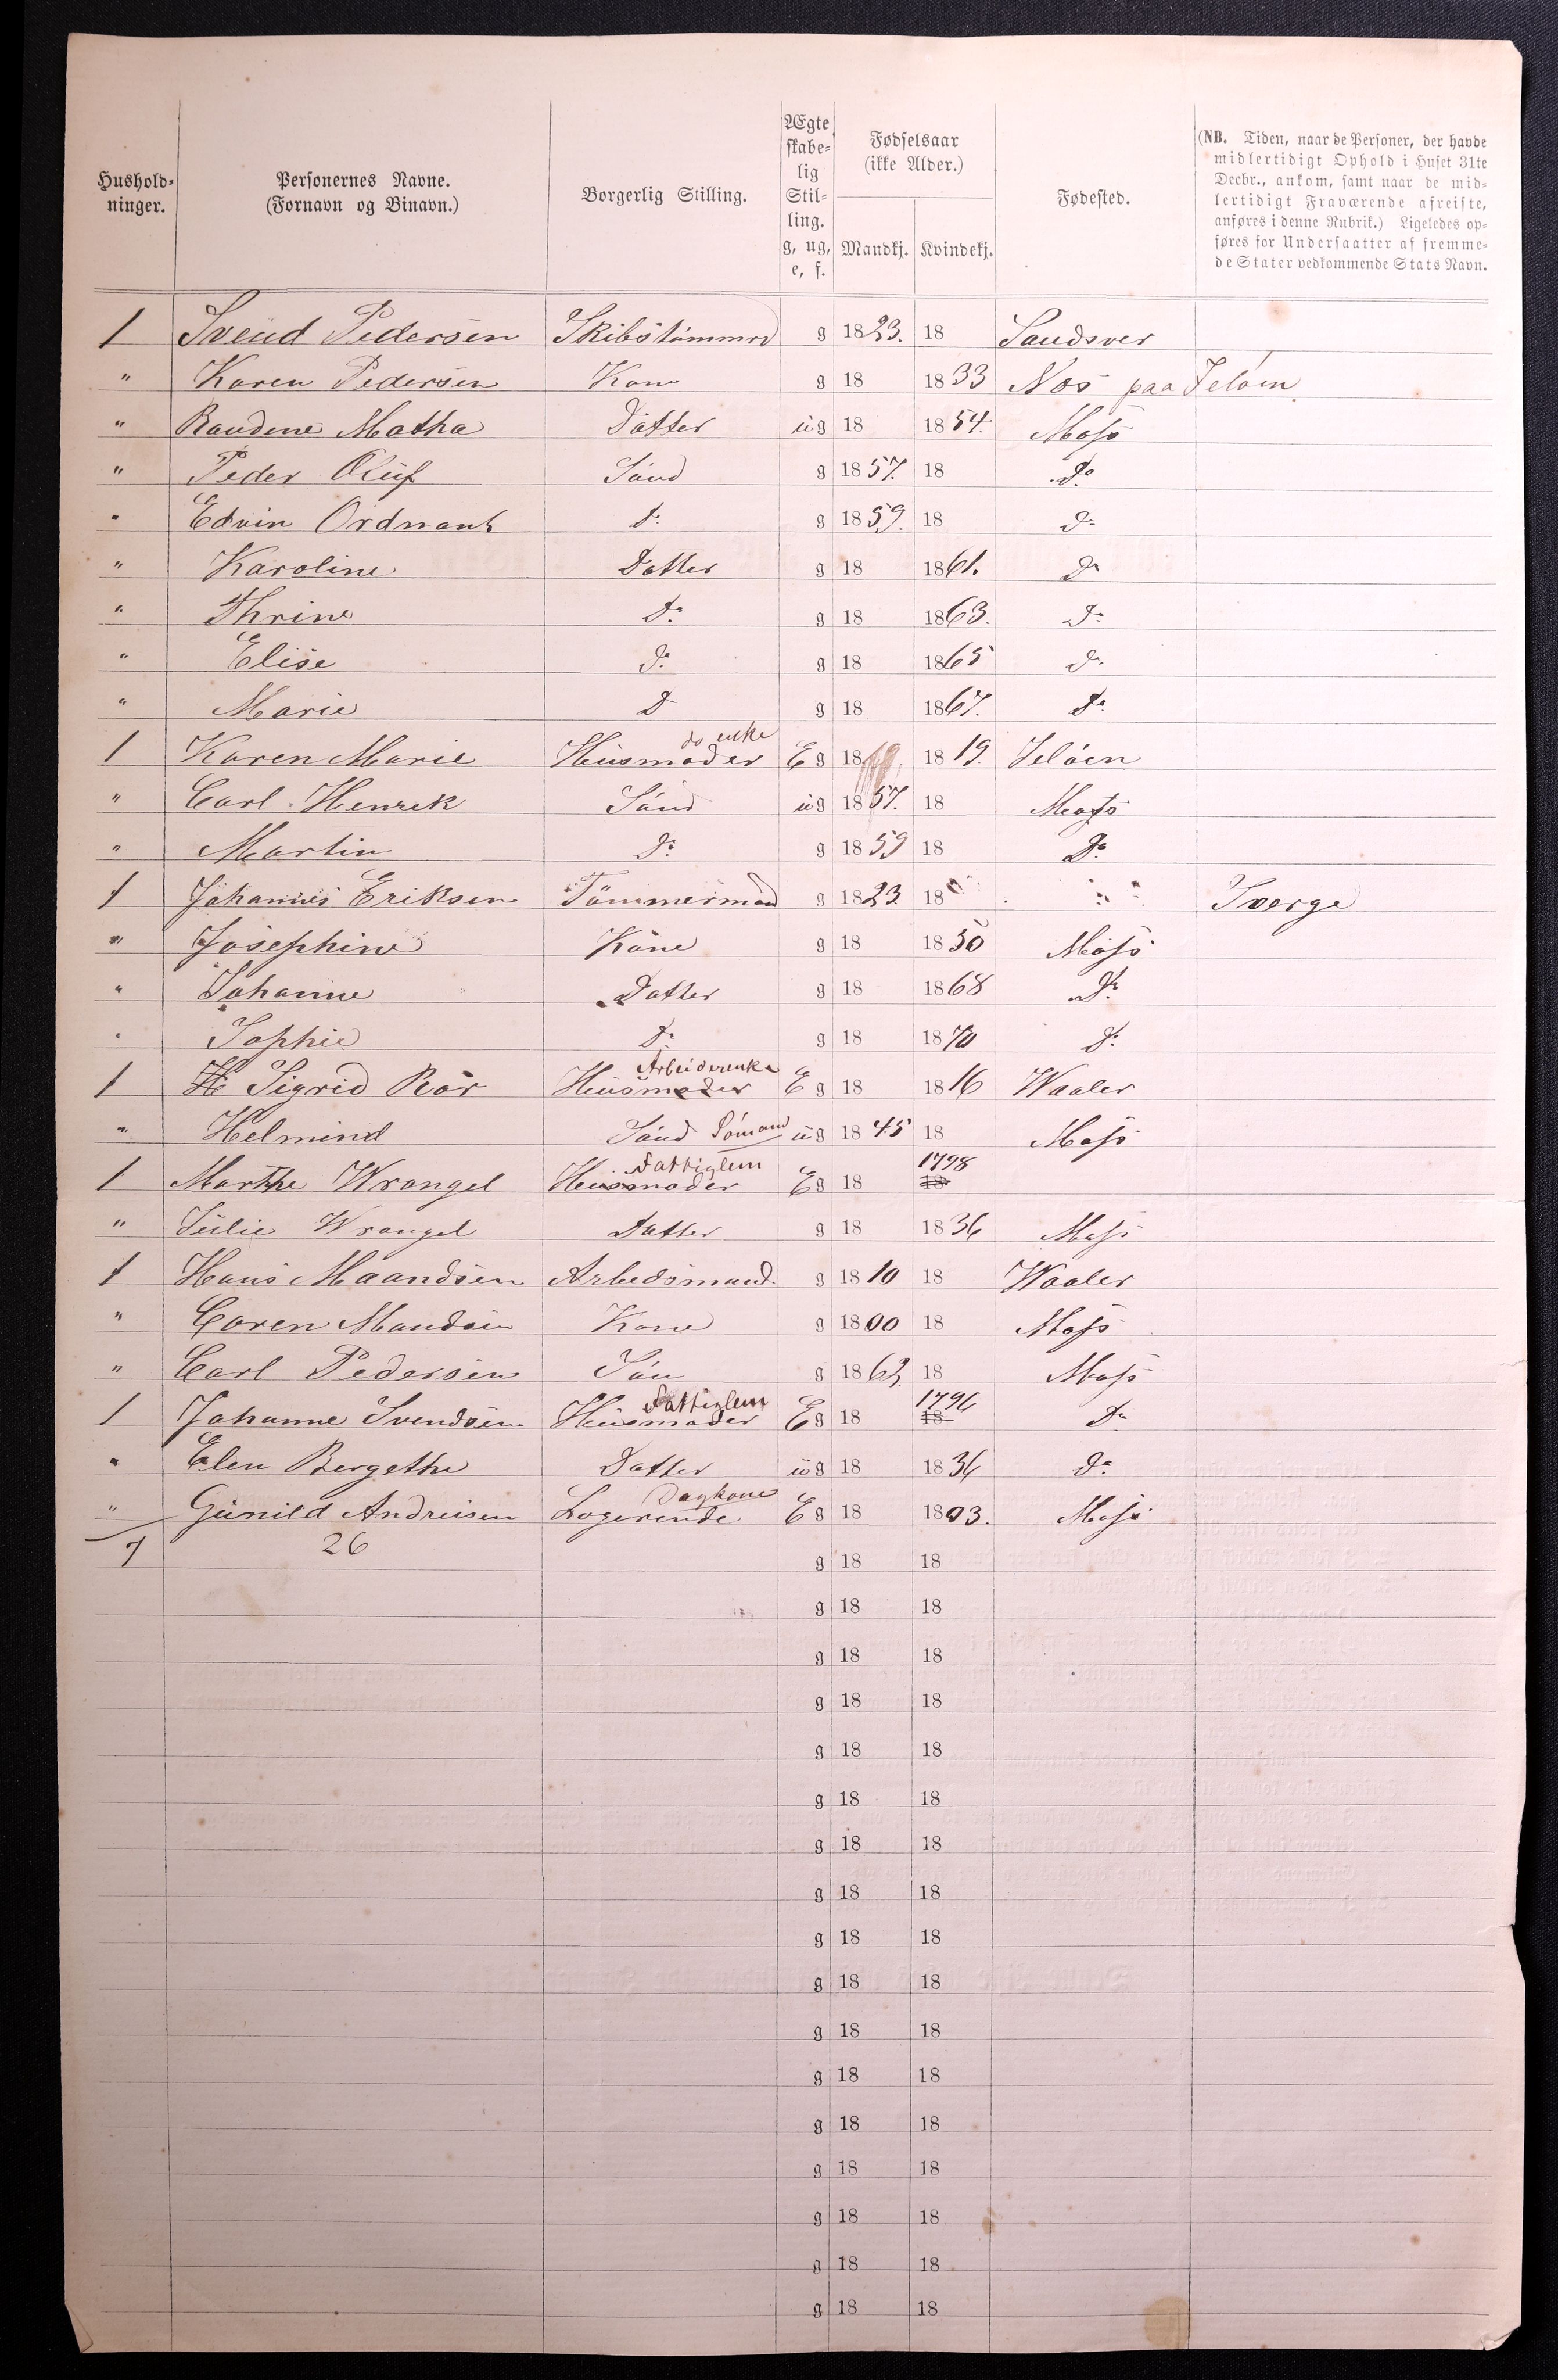 Hushold-
ninger.
Personernes Navne.
(Fornavn og Binavn.)
Borgerlig Stilling.
Ægte
skabe-
lig
Stil-
ling.
g, ug,
e, f.
Fødselsaar
(ikke Alder.)
Mandkj. Kvindekj.
Fødested.
(NB. Tiden, naar de Personer, der havde
midlertidigt Ophold i Huset 31te
Decbr., ankom, samt naar de mid-
lertidigt Fraværende afreiste,
anføres i denne Rubrik.) Ligeledes op-
føres for Undersaatter af fremme-
de Stater vedkommende Stats Navn.
1 Svend Pedersen Skibstømmrd g 1823. 18 Sandsver
" Karen Pedersen Kone g 18 1833 Nos paa Jeløen
" Randine Matha Datter ug 18 1854. Moss
" Peder Oluf Sønd g 1857. 18 Do
" Edvin Ordnant Do g 1859. 18 Do
" Karoline Datter g 18 1861. Do
" Thrine Do g 18 1863. Do
" Elise Do g 18 1865 Do
" Marie D g 18 1867. Do
do enke
1 Karen Marie Husmoder E g 18 1819. Jeløen
" Carl Henrik Sønd ug 1857. 18 Moss
" Martin Do g 1859 18 Do
1 Johannis Eriksen Tømmermand g 1823. 18 " " Sverge
" Josephine Kone g 18 1850 Moss
" Johanne Datter g 18 1868 Do
" Sophie Do g 18 1870 Do
Arbeiderenke
1 Sigrid Rør Husmoder E g 18 1816 Waaler
" Helmind Sønd Sømand ug 1845 18 Moss
Fattiglem 1798
1 Marthe Wrangel Husmoder E g 18 18
" Julie Wrangel Datter g 18 1836 Moss
1 Hans Maandsen Arbedsmand g 1810 18 Waaler
" Caren Mandsen Kone g 1800 18 Moss
" Carl Pedersen Søn g 1863 18 Moss
Fattiglem 1796
1 Johanne Svendsen Husmoder E g 18 18 Do
" Elen Bergethe Datter ug 18 1836 Do
Dagkone
" Gunild Andreisen Logerende E g 18 1803. Moss
7 26 g 18 18
g 18 18
g 18 18
g 18 18
g 18 18
g 18 18
g 18 18
g 18 18
g 18 18
g 18 18
g 18 18
g 18 18
g 18 18
g 18 18
g 18 18
g 18 18
g 18 18